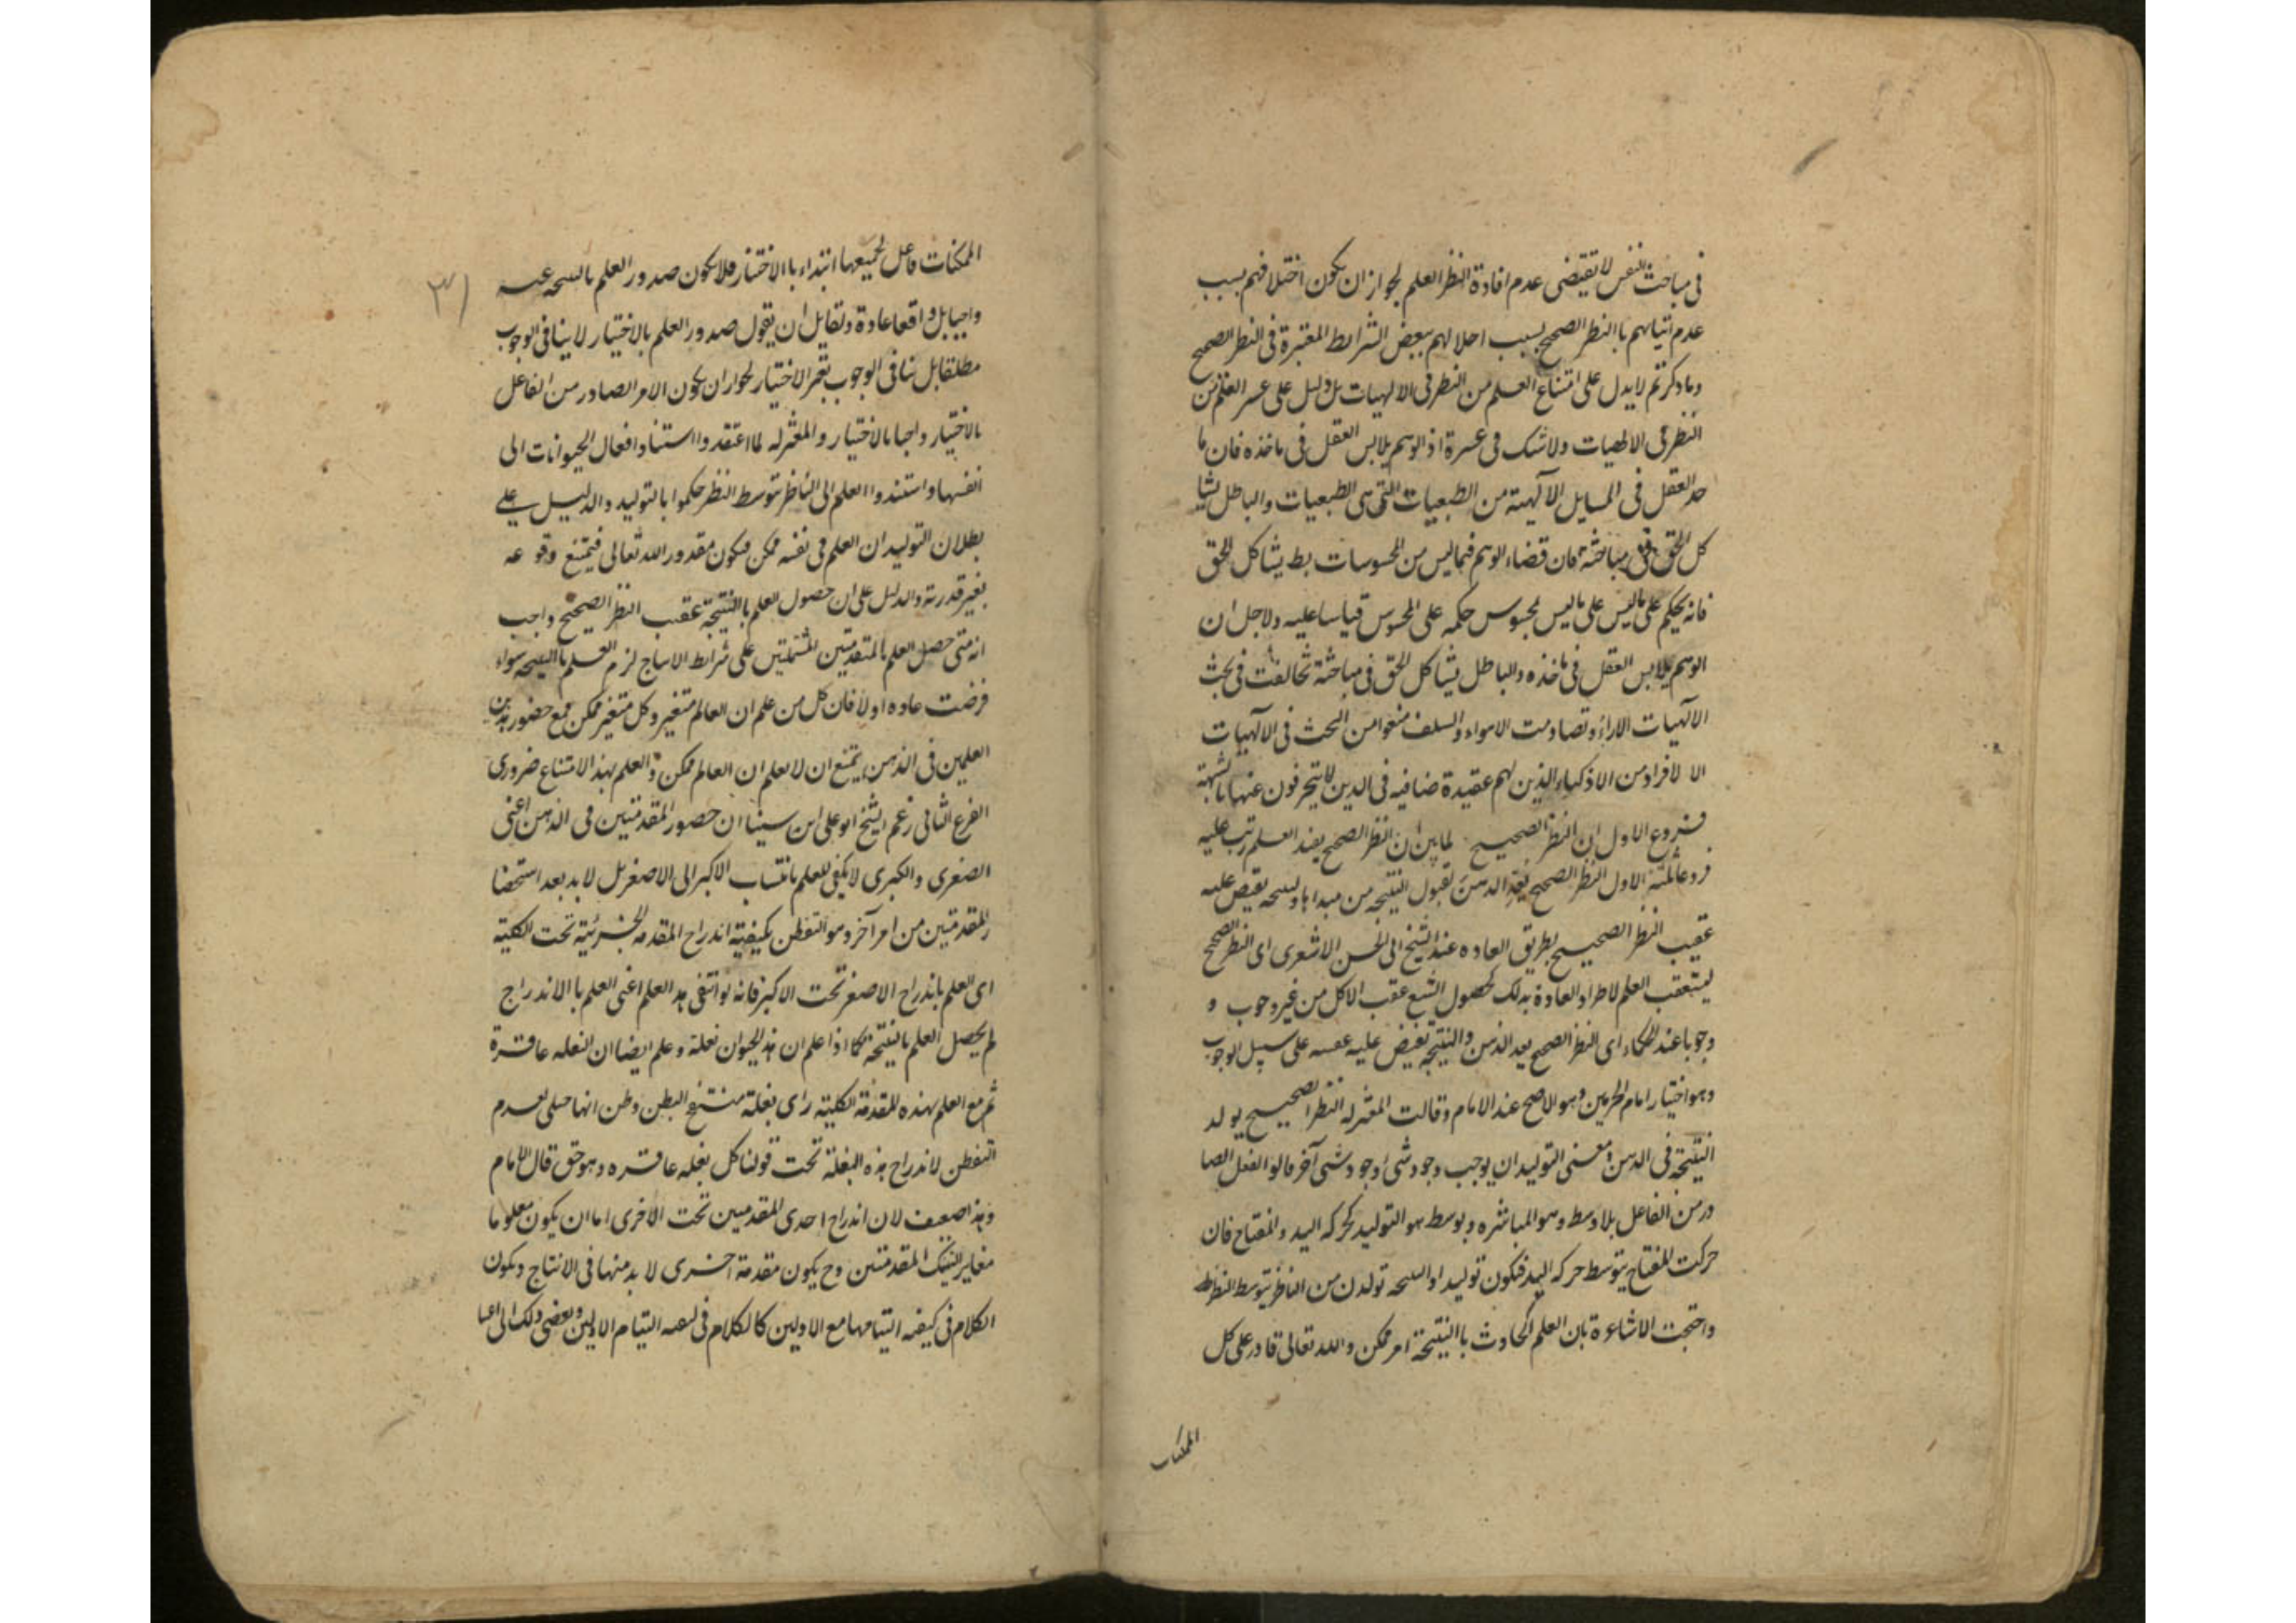 فى مباحث النفس لا تقيتضى عدم افادة النظر العلم لجواز ان يكون اختلافهم بسبب
عدم اتيانهم باالنظر الصحيح بسبب اخلالهم ببعض الشرايط المعتبرة فى النظر الصحيح
وما ذكرتم لا يدل على امتناع العلم من النظر فى الالهيات بل دليل على عسر العلم من
النظر فى الالهيات ولا شك فى عسرة اذ الوهم يلابس العقل فى ماخذه فان ما
حد العقل فى المسايل الآلهية من الطبعيات التى هى الطبعيات والباطل يشا
كل الحق فى مباحثه فان قضاء الوهم فيما ليس من المحسوسات بط يشاكل الحق
فانه يحكم على ماليس على ماليس بمحسوس حكمه على المحسوس قياسا عليه ولاجل ان
الوهم يلابس العقل فى ماخذه والباطل يشاكل الحق فى مباحثة تخالفت فى بحث
الآلهيات الاراء وتصادمت الاهواء والسلف منعوا من البحث فى الآلهيات
الا لافراد من الاذكياء الذين لهم عقيدة صافيه فى الدين لا يتحرفون عنها بالشبهة
فروع الاول ان النظر الصحيح لما بين ان النظر الصحيح يفيد العلم رتب عليه
فروعا ثلثة الاول النظر الصحيح يعد الذهن لقبول النتيجه من مبداها والنتيجه تفيض عليه
عقيب النظر الصحيح بطريق العاده عند الشيخ ابى الحسن الاشعرى اى النظر الصحيح
يستعقب العلم لاطراد العادة بذلك كحصول الشبع عقب الاكل من غير وجوب و
وجوبا عند الحكماء اى النظر الصحيح يعد الذهن والنتيجه تفيض عليه عقيبه على سبيل الوجوب
وهو اختيار امام الحرمين وهو الاصح عند الامام وقالت المعتزله النظر الصحيح يولد
النتيجة فى الذهن ومعنى التوليد ان يوجب وجود شى وجود شى آخر فالوا الفعل الصا
در من الفاعل بلا وسط وهو المباشره وبوسط هو التوليد كحركه اليد والمفتاح فان
حركت المفتاح بتوسط حركه اليد فيكون توليدا والنتيجه تولدت من الناظر بتوسط النظر
واحتجت الاشاعرة بان العلم الحادث باالنتيجة امر ممكن والله تعالى قادر على كل
الممكنات
الممكنات فاعل لجميعها ابتداء باالاختيار فلا يكون صدور العلم بالنتيجه عنه
واجبا بل واقعا عادة ولقايل ان يقول صدور العلم بالاختيار لا ينافى الوجوب
مطلقا بل ينافى الوجوب بغير الاختيار لجواز ان يكون الامر الصادر من الفاعل
بالاختيار واجبا بالاختيار والمعتزله لما اعتقدوا استناد افعال الحيوانات الى
انفسها واستندوا العلم الى الناظر بتوسط النظر حكموا بالتوليد والدليل على
بطلان التوليد ان العلم فى نفسه ممكن فيكون مقدور الله تعالى فيمتنع وقوعه
بغير قدرته والدليل على ان حصول العلم باالنتيجة عقب النظر الصحيح واجب
انه متى حصل العلم بالمتقدمتين المشتملتين على شرايط الانتاج لزم العلم باالنتيجه سواء
فرضت عاده اولا فان كل من علم ان العالم متغير وكل متغير ممكن فمع حضور هذين
العلمين فى الذهن يمتنع ان لا يعلم ان العالم ممكن والعلم بهذا الامتناع ضرورى
الفرع الثانى زعم الشيخ ابو على ابن سينا ان حضور المقدمتين فى الذهن اعنى
الصغرى والكبرى لا يكفى للعلم بانتساب الاكبر الى الاصغر بل لا بد بعد استحضا
ر المقدمتين من امر آخر وهو التفطن بكيفية اندراج المقدمه الجزئية تحت الكلية
اى العلم باندراج الاصغر تحت الاكبر فانه لو انتفى هذ العلم اعنى العلم باالاندراج
لم يحصل العلم بالنتيجة كما اذا علم ان هذ الحيوان بغلة وعلم ايضا ان البغله عاقرة
ثم مع العلم بهذه المقدمة الكلية راى بغلة منتفخ البطن وظن انها حبلى لعدم
التفطن لاندراج هذه البغلة تحت قولنا كل بغله عاقره وهو حق قال الامام
وهذا ضعيف لان اندراج احدى المقدمتين تحت الاخرى اما ان يكون معلوما
مغاير لتينك المقدمتين وح يكون مقدمة اخرى لا بد منها فى الانتاج ويكون
الكلام فى كيفية التيامها مع الاولين كالكلام فى كيفية التيام الاولين ويفضى ذلك الى اعبا
٣١